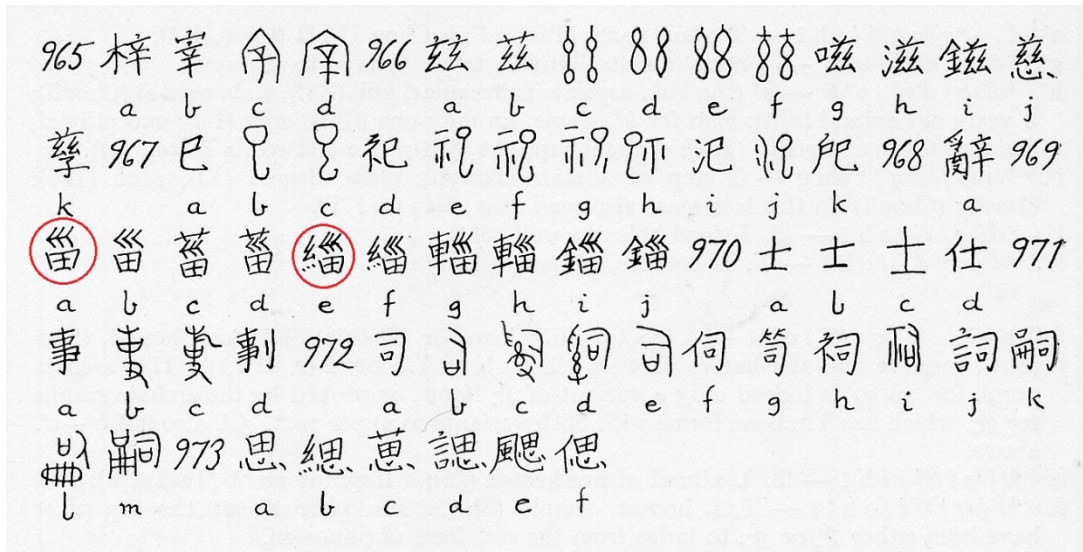 965 梓 宰 966 玆 茲 嗞 滋 鎡 慈
a b c d a b c d e f g h i j
孳 967 巳 祀 汜 968 辭 969
k a b c d e f g h i j a
甾 甾 菑 菑 緇 緇 輜 輜 錙 錙 970 士 士 士 仕 971
a b c d e f g h i j a b c d
事 剚 972 司 伺 笥 祠 詞 嗣
a b c d a b c d e f g h i j k
嗣 973 思 緦 葸 諰 颸 偲
l m a b c d e f